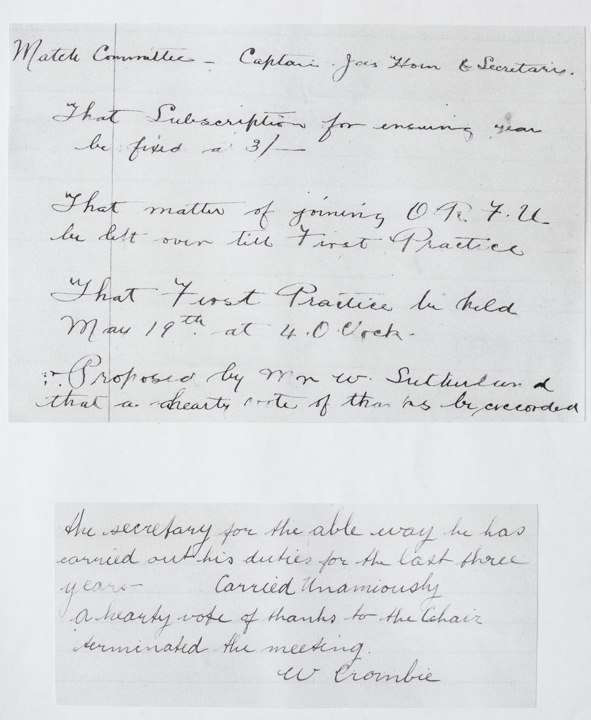 Match Committee – Captain Jas Horn & Secretary.
That Subscription for ensuing year
be fixed a 3/-
That matter of joining O R. F. U
be left over till First Practice
That First Practice be held
May 19th at 4 O Clock.
Proposed by Mr W. Sutherland
that a hearty vote of thanks be recorded
the secretary for the able way he has
carried out his duties for the last three
years – Carried Unamiously
a hearty vote of thanks to the Chair
terminated the meeting.
W Crombie